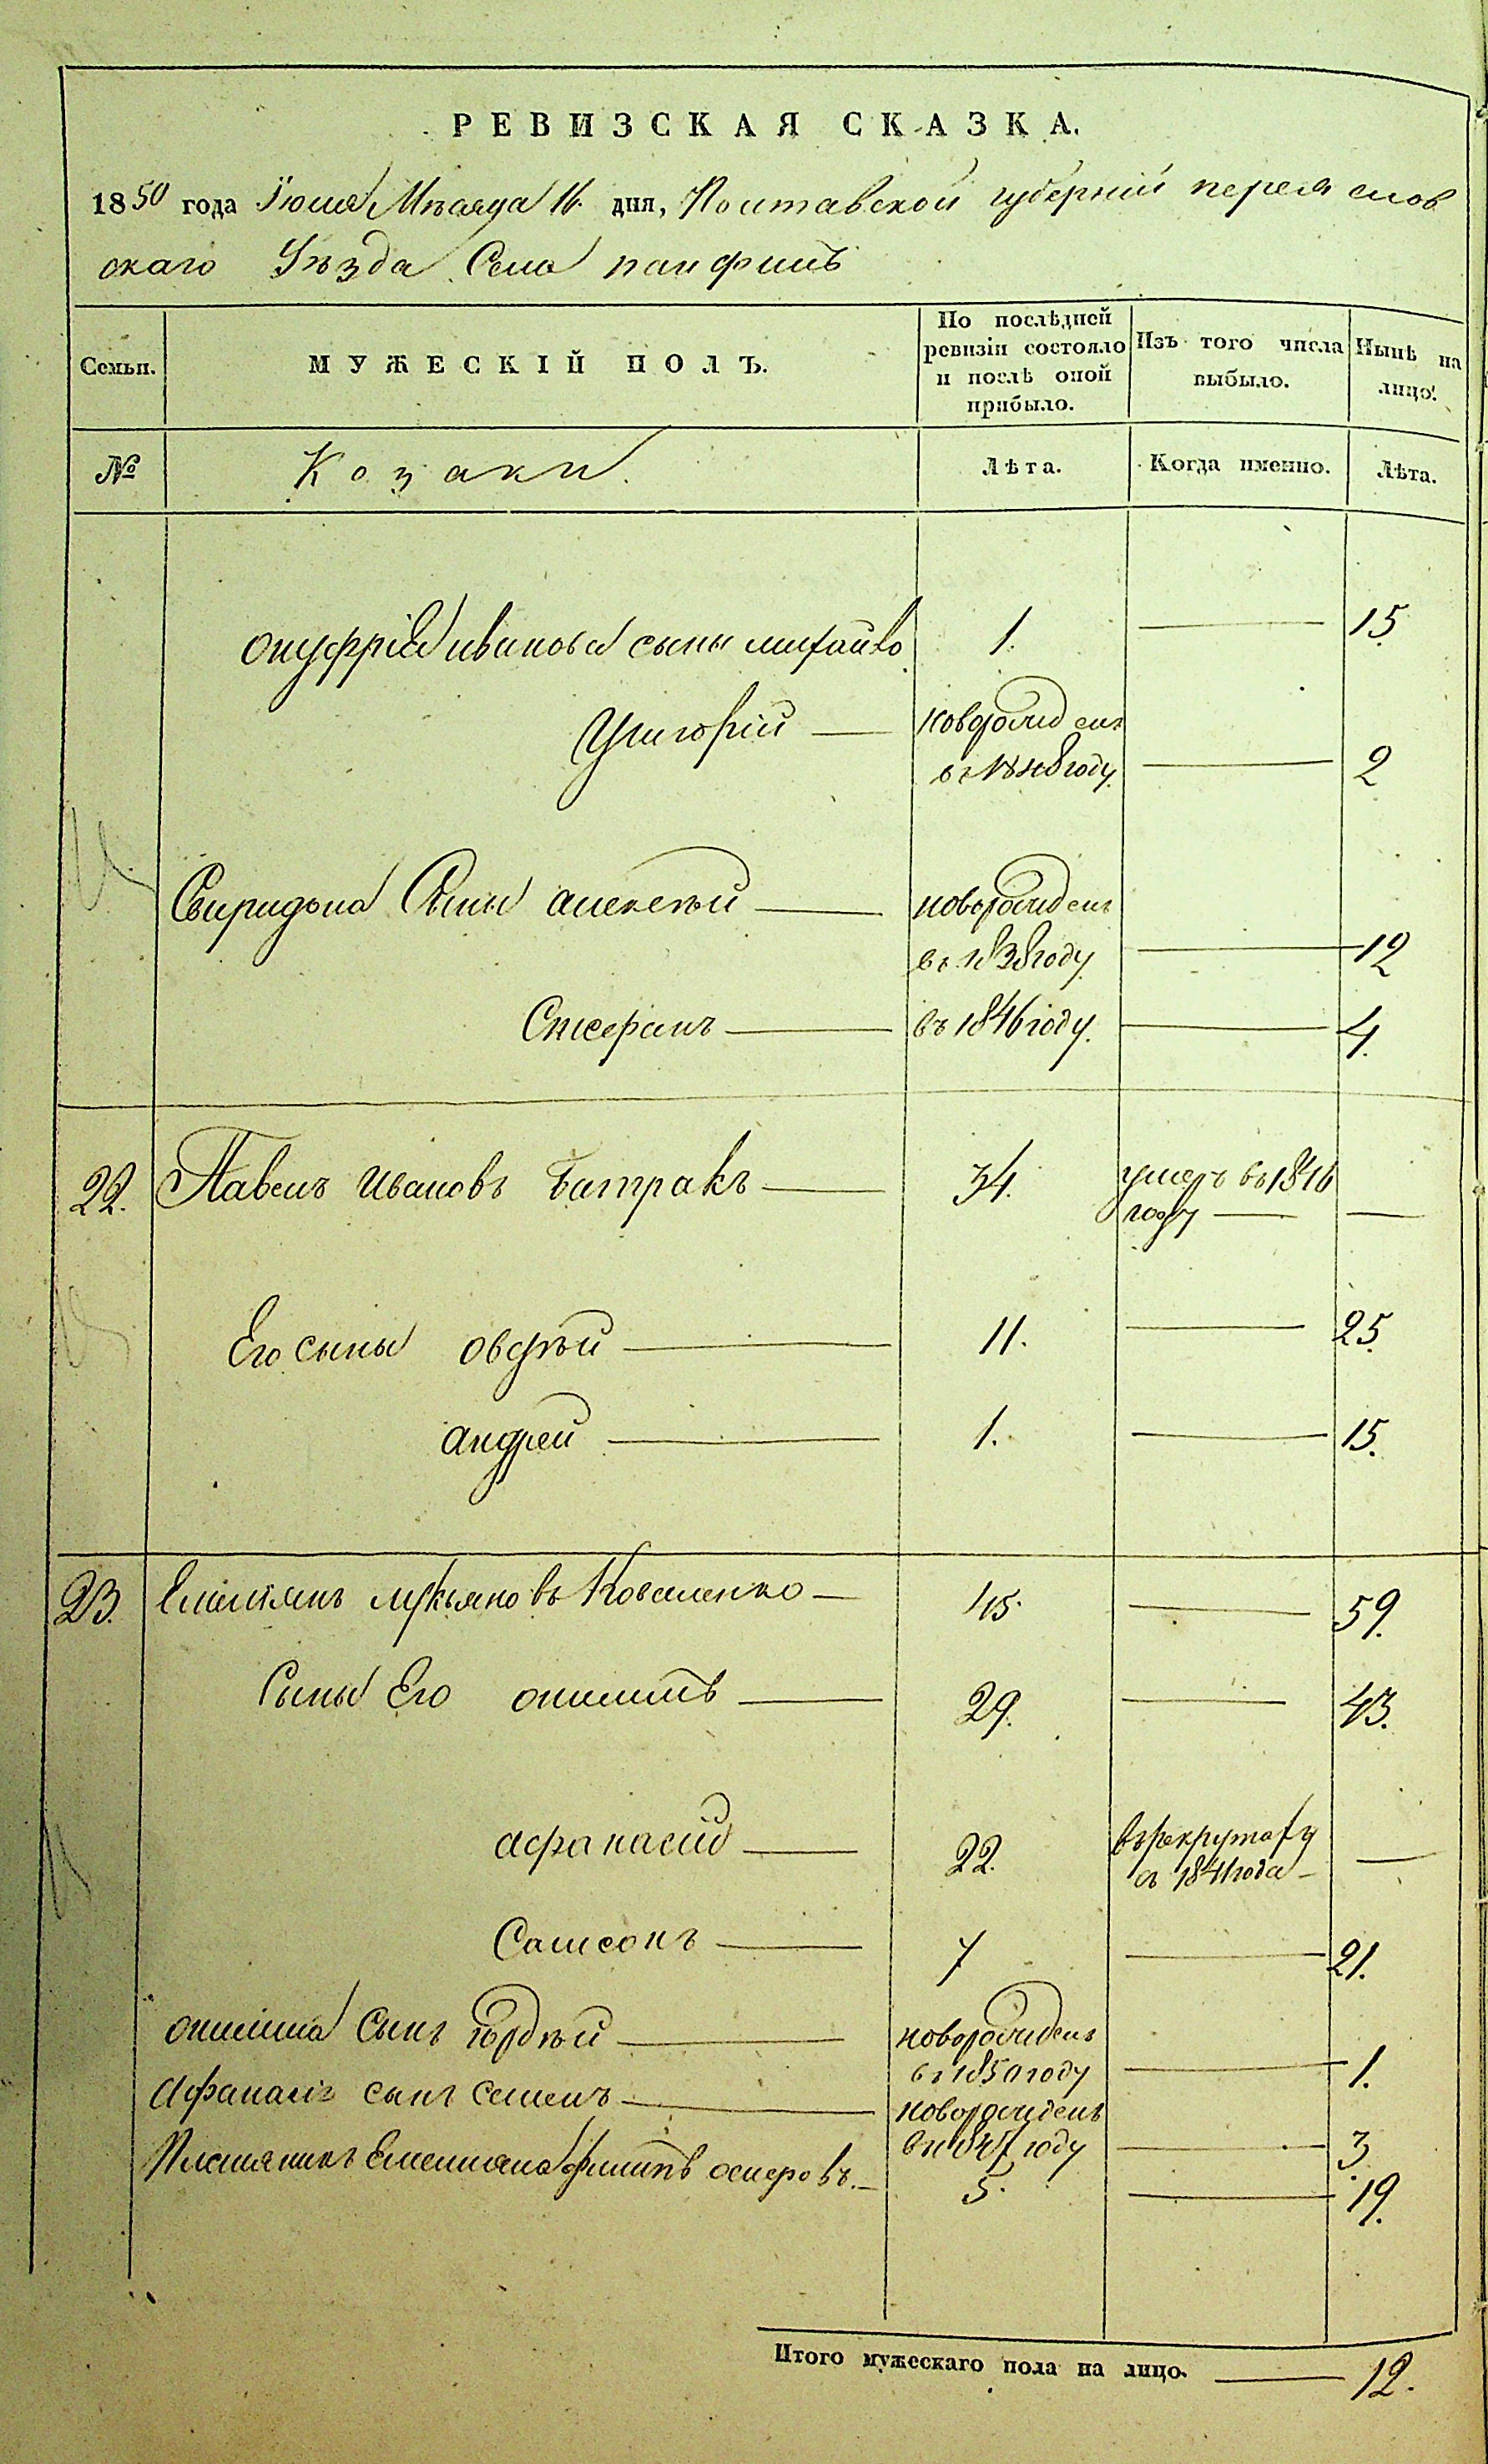 РЕВИЗСКАЯ СКАЗКА.
1850 года Іюля Мѣсяца 16 дня, Полтавской губерніи переяслов
скаго Уѣзда Села панфилъ
Семьи. МУЖЕСКІЙ ПОЛЪ. По послѣдней ревизіи состояло и послѣ оной прибыло. Изъ того числа выбыло. Нынѣ на лицо.
№ Козаки. Лѣта. Когда именно. Лѣта.
онуфрія иванова сыны михайло 1. 15
Григорій новорожденъ
въ 1848 году. 2
Свиридона Сыны алексѣй новорожденъ
въ 1838 году 12
Стефанъ въ 1846 году. 4.
22. Павелъ Ивановъ Батракъ 34. умеръ въ 1846
году
Его сыны овдѣй 11. 25
андрей 1. 15.
23. Емелиянъ лукьяновъ Коваленко 45. 59.
Сыны Его онисимъ 29. 43.
афанасій 22. въ рекрутахъ
съ 1841 года
Самсонъ 7 21.
онисима сынъ гордѣй новорожденъ
въ 1850 году 1.
Афанасія сынъ семенъ новорожденъ
въ 1847 году 3
Племянникъ Емелиана филипъ 5. 19.
Итого мужескаго пола на лицо. 12.